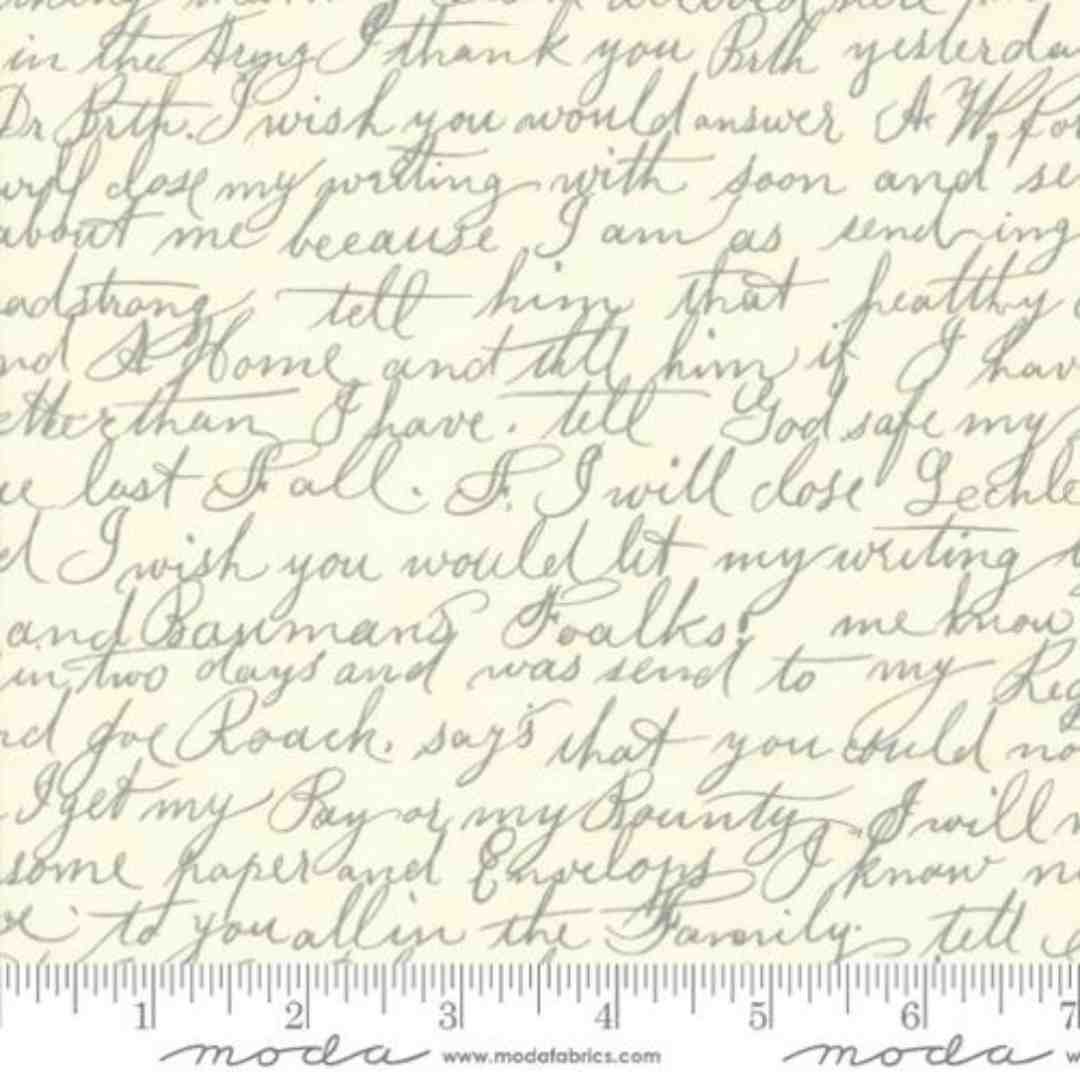 in the Army I thank you Brth yesterda
Dr Brth. I wish you would answer A. W. for
will close my writing with soon and se
about me beeause I am as sending
adstrong tell him that healthy
nd A Home and till him if I hav
etter than I have. tell God safe my
ue last Fall. F. I will close Lechle
d I wish you would let my writing
and Baumans Foalks. me know
in two days and was send to my Reg
nd Joe Roack. say's that you could no
I get my Pay or my Bounty, I will n
some paper and Envelops I know no
to you all in the Family. tell
1 2 3 4 5 6 7
moda www.modafabrics.com moda w